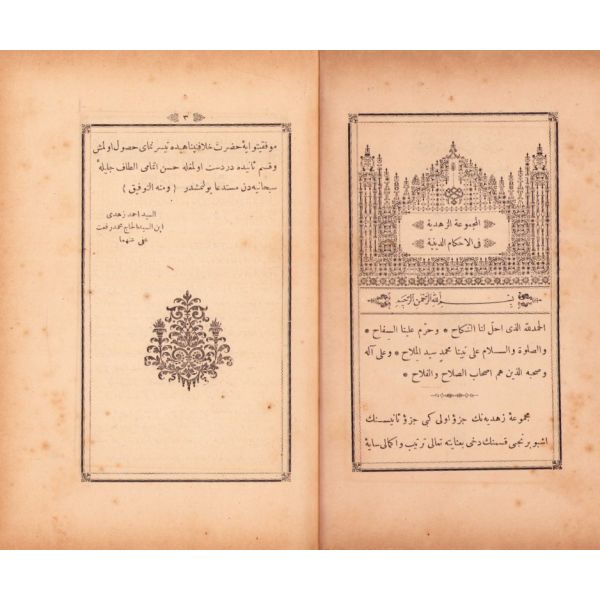 المجموعة الزهدية
فى الاحكام الدينية
بسم الله الرحمن الرحيم
الحمدلله الذى احل لنا النكاح * وحرم علينا السفاح *
والصلوة والسلام على نبينا محمد سيد الملاح * وعلى آله
وصحبه الذين هم اصحاب الصلاح والفلاح *
مجموعۀ زهديه نك جزؤ اولى كبى جزؤ ثانيسنك
اشبو برنجى قسمنك دخى بعنايته تعالى ترتيب واكمالى سايۀ
٣
موفقيتوايۀ حضرت خلافتپناهيده تيسر نماى حصول اولمش
وقسم ثانيده دردست اولمغله حسن اتمامى الطاف جليلۀ
سبحانيه دن مستدعا بولنمشدر ( ومنه التوفيق )
السيد احمد زهدى
ابن السيد الحاج محمد رفعت
عفى عنهما